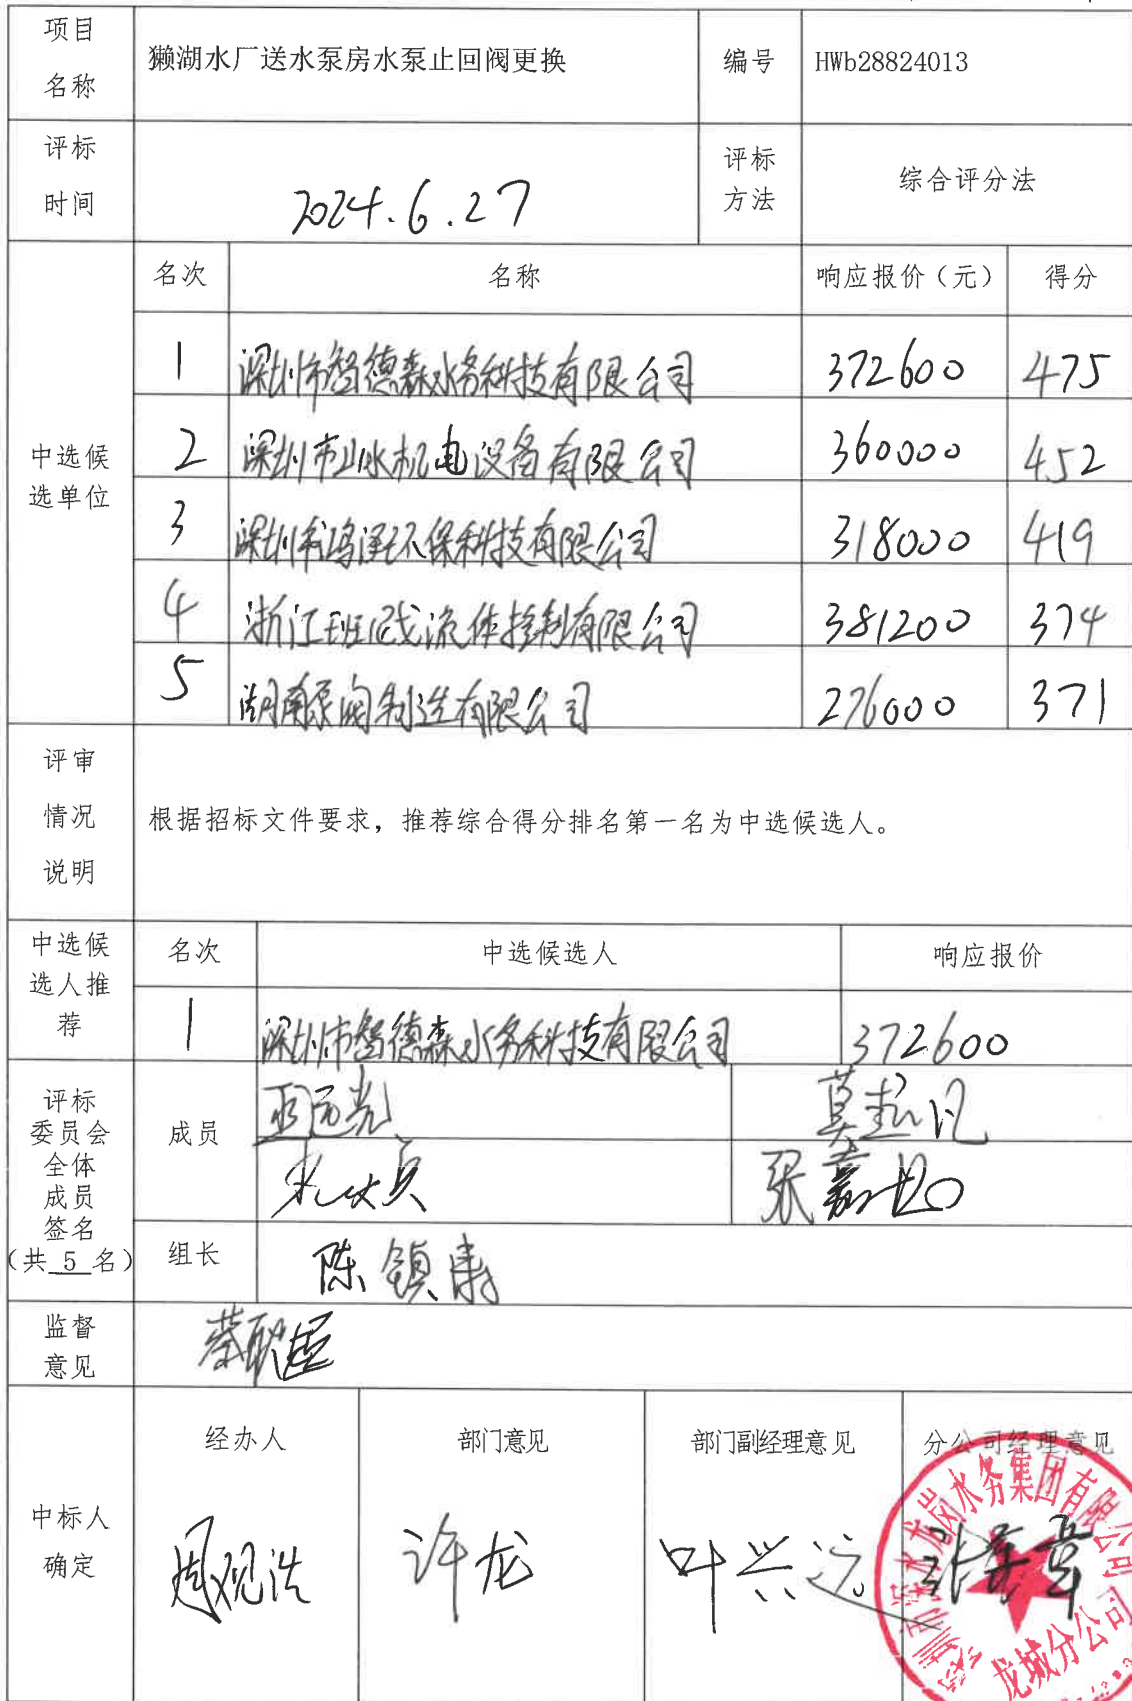 项目
名称
獭湖水厂送水泵房水泵止回阀更换
编号
HWb28824013
评标
时间
2024.6.27
评标
方法
综合评分法
中选候
选单位
名次
名称
响应报价（元）
得分
1
深圳市智德森水务科技有限公司
372600
475
2
深圳市山水机电设备有限公司
360000
452
3
深圳市鸿泽环保科技有限公司
318000
419
4
浙江班戈流体控制有限公司
381200
374
5
湖南泵阀制造有限公司
276000
371
评审
情况
说明
根据招标文件要求，推荐综合得分排名第一名为中选候选人。
中选候
选人推
荐
名次
中选候选人
响应报价
1
深圳市智德森水务科技有限公司
372600
评标
委员会
全体
成员
签名
（共 5 名）
成员
组长
监督
意见
中标人
确定
经办人
部门意见
许龙
部门副经理意见
叶兴
分公司经理意见
深水龙岗水务集团有限公司
龙城分公司